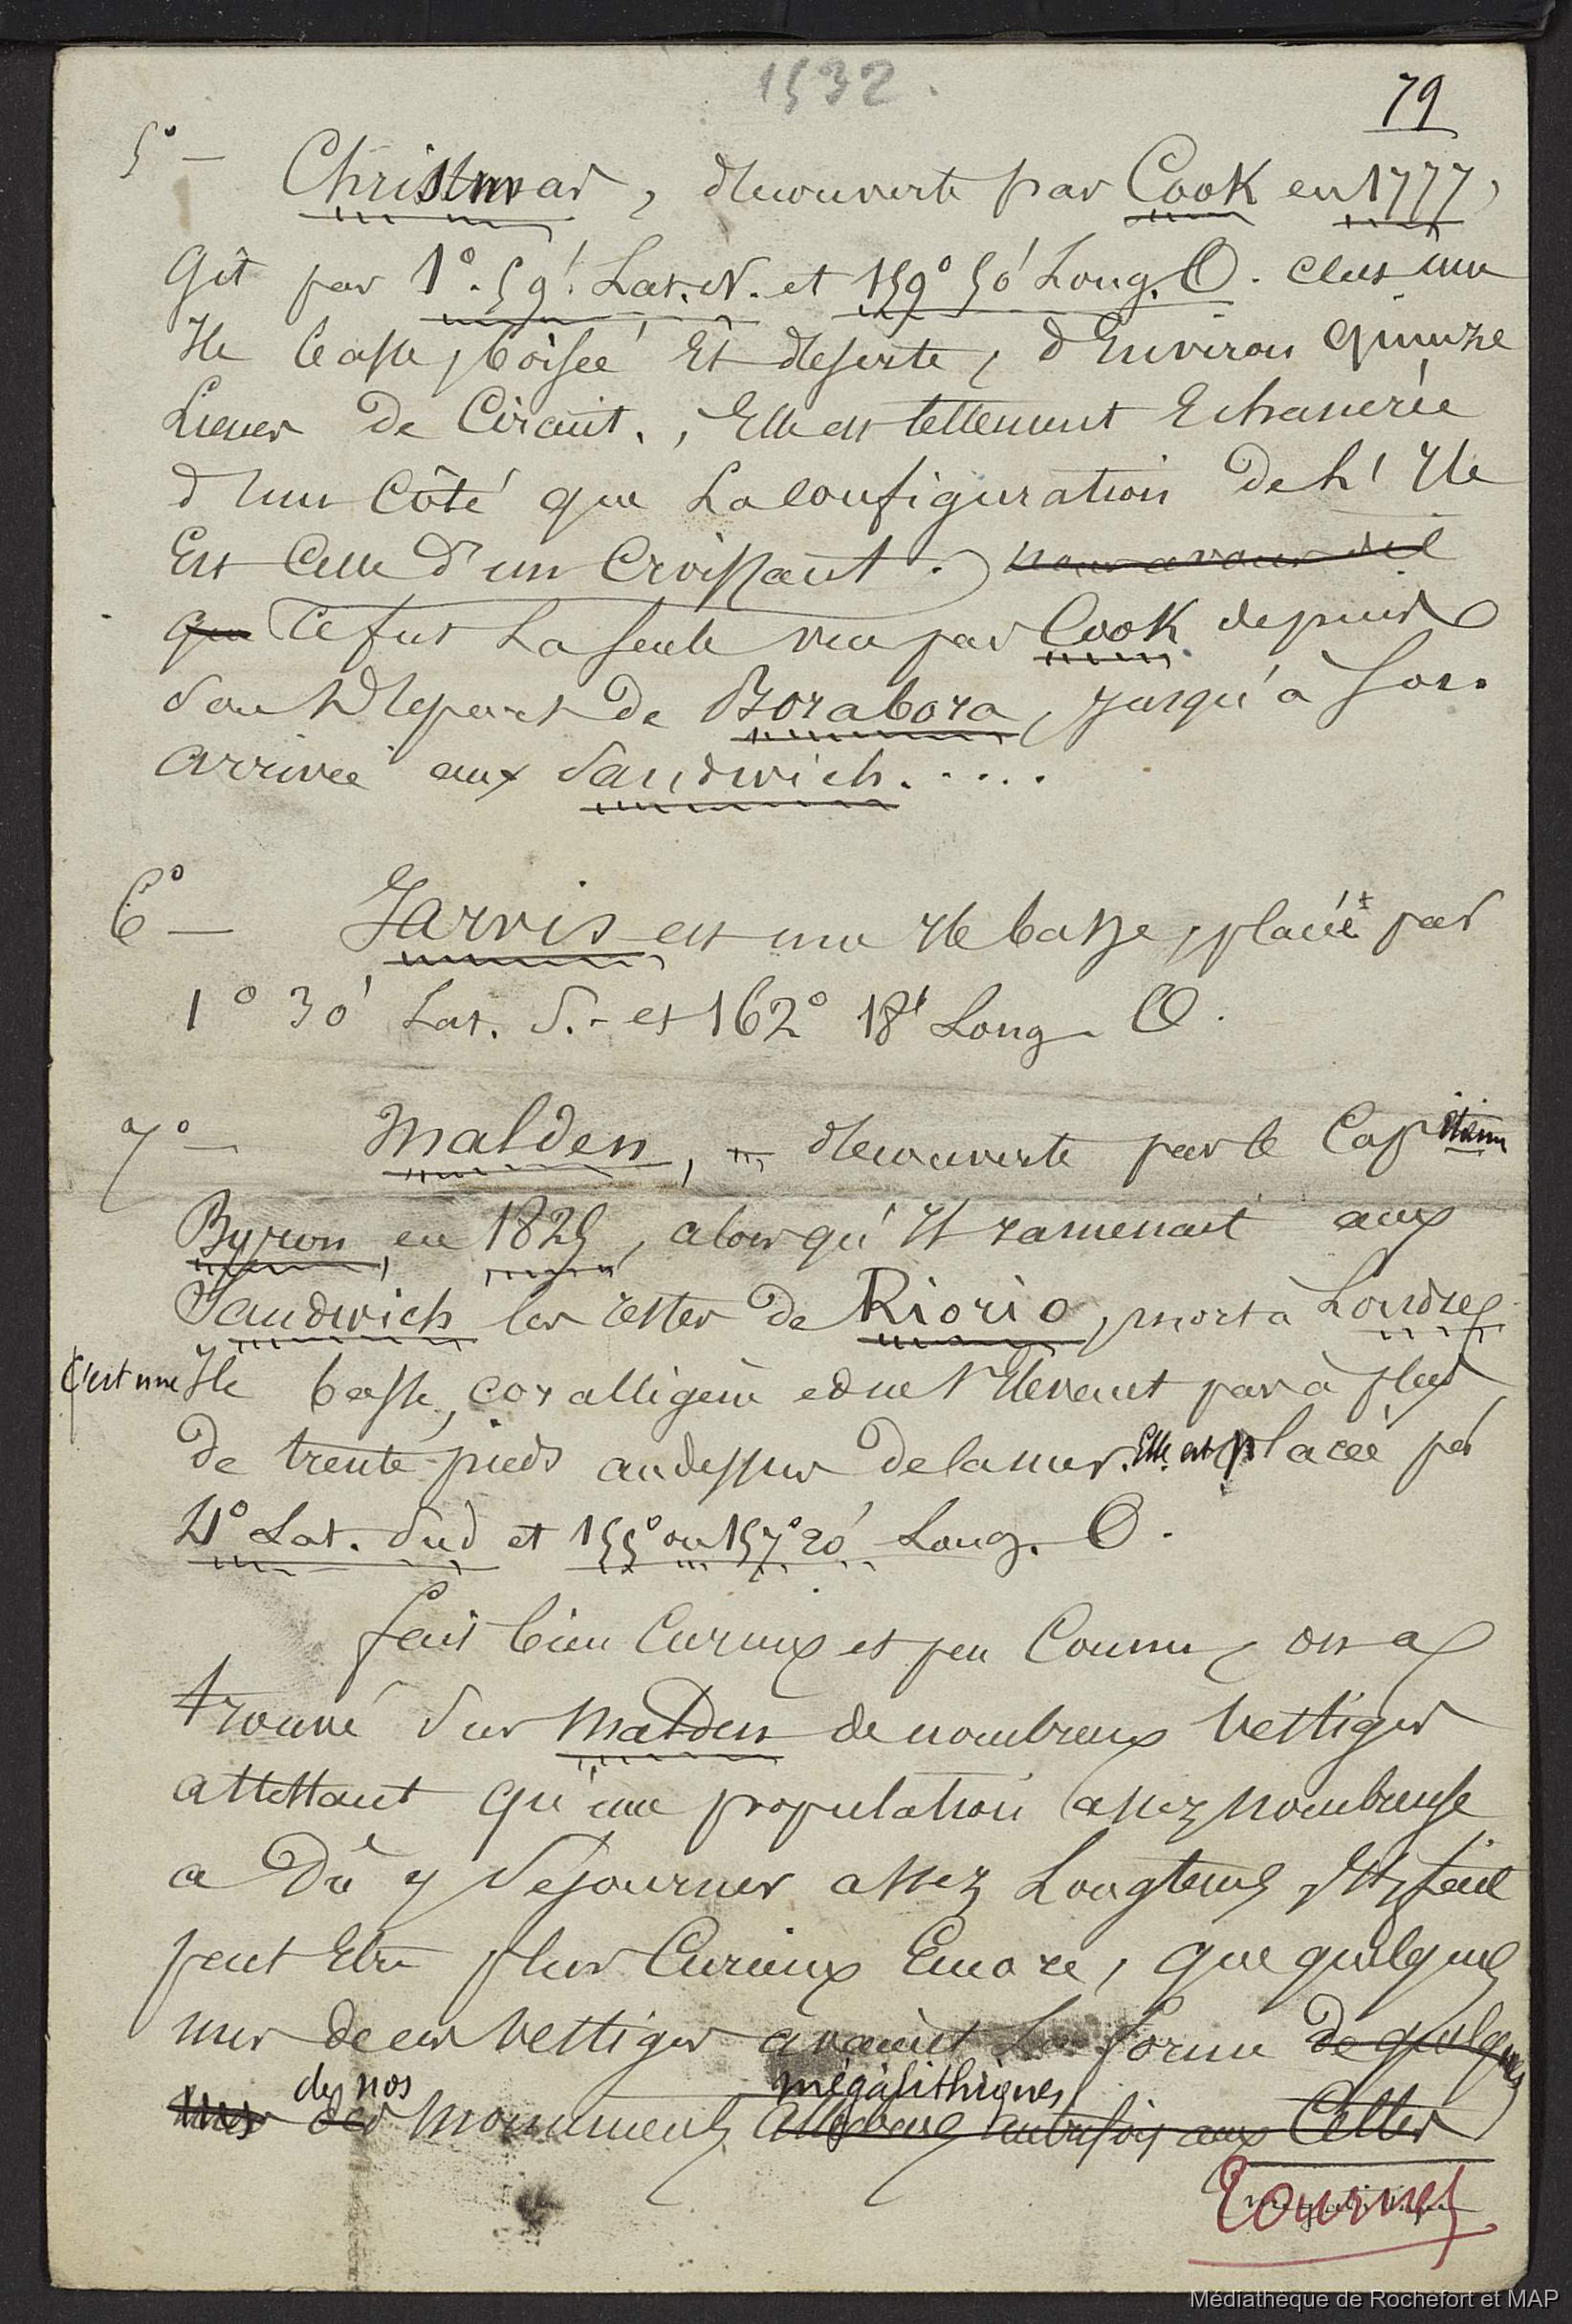 1532.
79
5° — Christmas, decouverte par Cook en 1777,
Gît par 1°. 59'. Lat. N. et 159° 50' Long. O. C'est une
Ile basse, boisée et deserte, d'Environ quinze
Lieues de Circuit., Elle est tellement Echancrée
d'un Côté que La Configuration de L'Ile
Est Celle d'un Croissant. nous avons dit
que Ce fut La seule vue par Cook depuis
son Depart de Borabora, jusqu'à son
arrivée aux Sandwich. . . . .
6° — Jarvis est une Ile basse, placée par
1° 30' Lat. S. - et 162° 18' Long. O.
7° — Malden, — decouverte par le Capitaine
Byron en 1825, alors qu'Il ramenait aux
Sandwich les restes de Riorio, mort à Londres
C'est une Ile basse, coralligène et ne s'Elevant pas à plus
de trente pieds audessus de la mer. Elle est placée par
4° Lat. Sud et 155° ou 157° 20' Long. O.
fait bien Curieux et peu Connu, on a
trouvé sur Malden de nombreux vestiges
attestant qu'une population assez nombreuse
a Dû y séjourner assez Longtems, Et, fait
peut Etre plus Curieux Encore, que quelques
uns de ces vestiges avaient La forme de quelques
uns des de nos monuments mégalithiques attribués autrefois aux Celtes
Tournez
Médiathèque de Rochefort et MAP